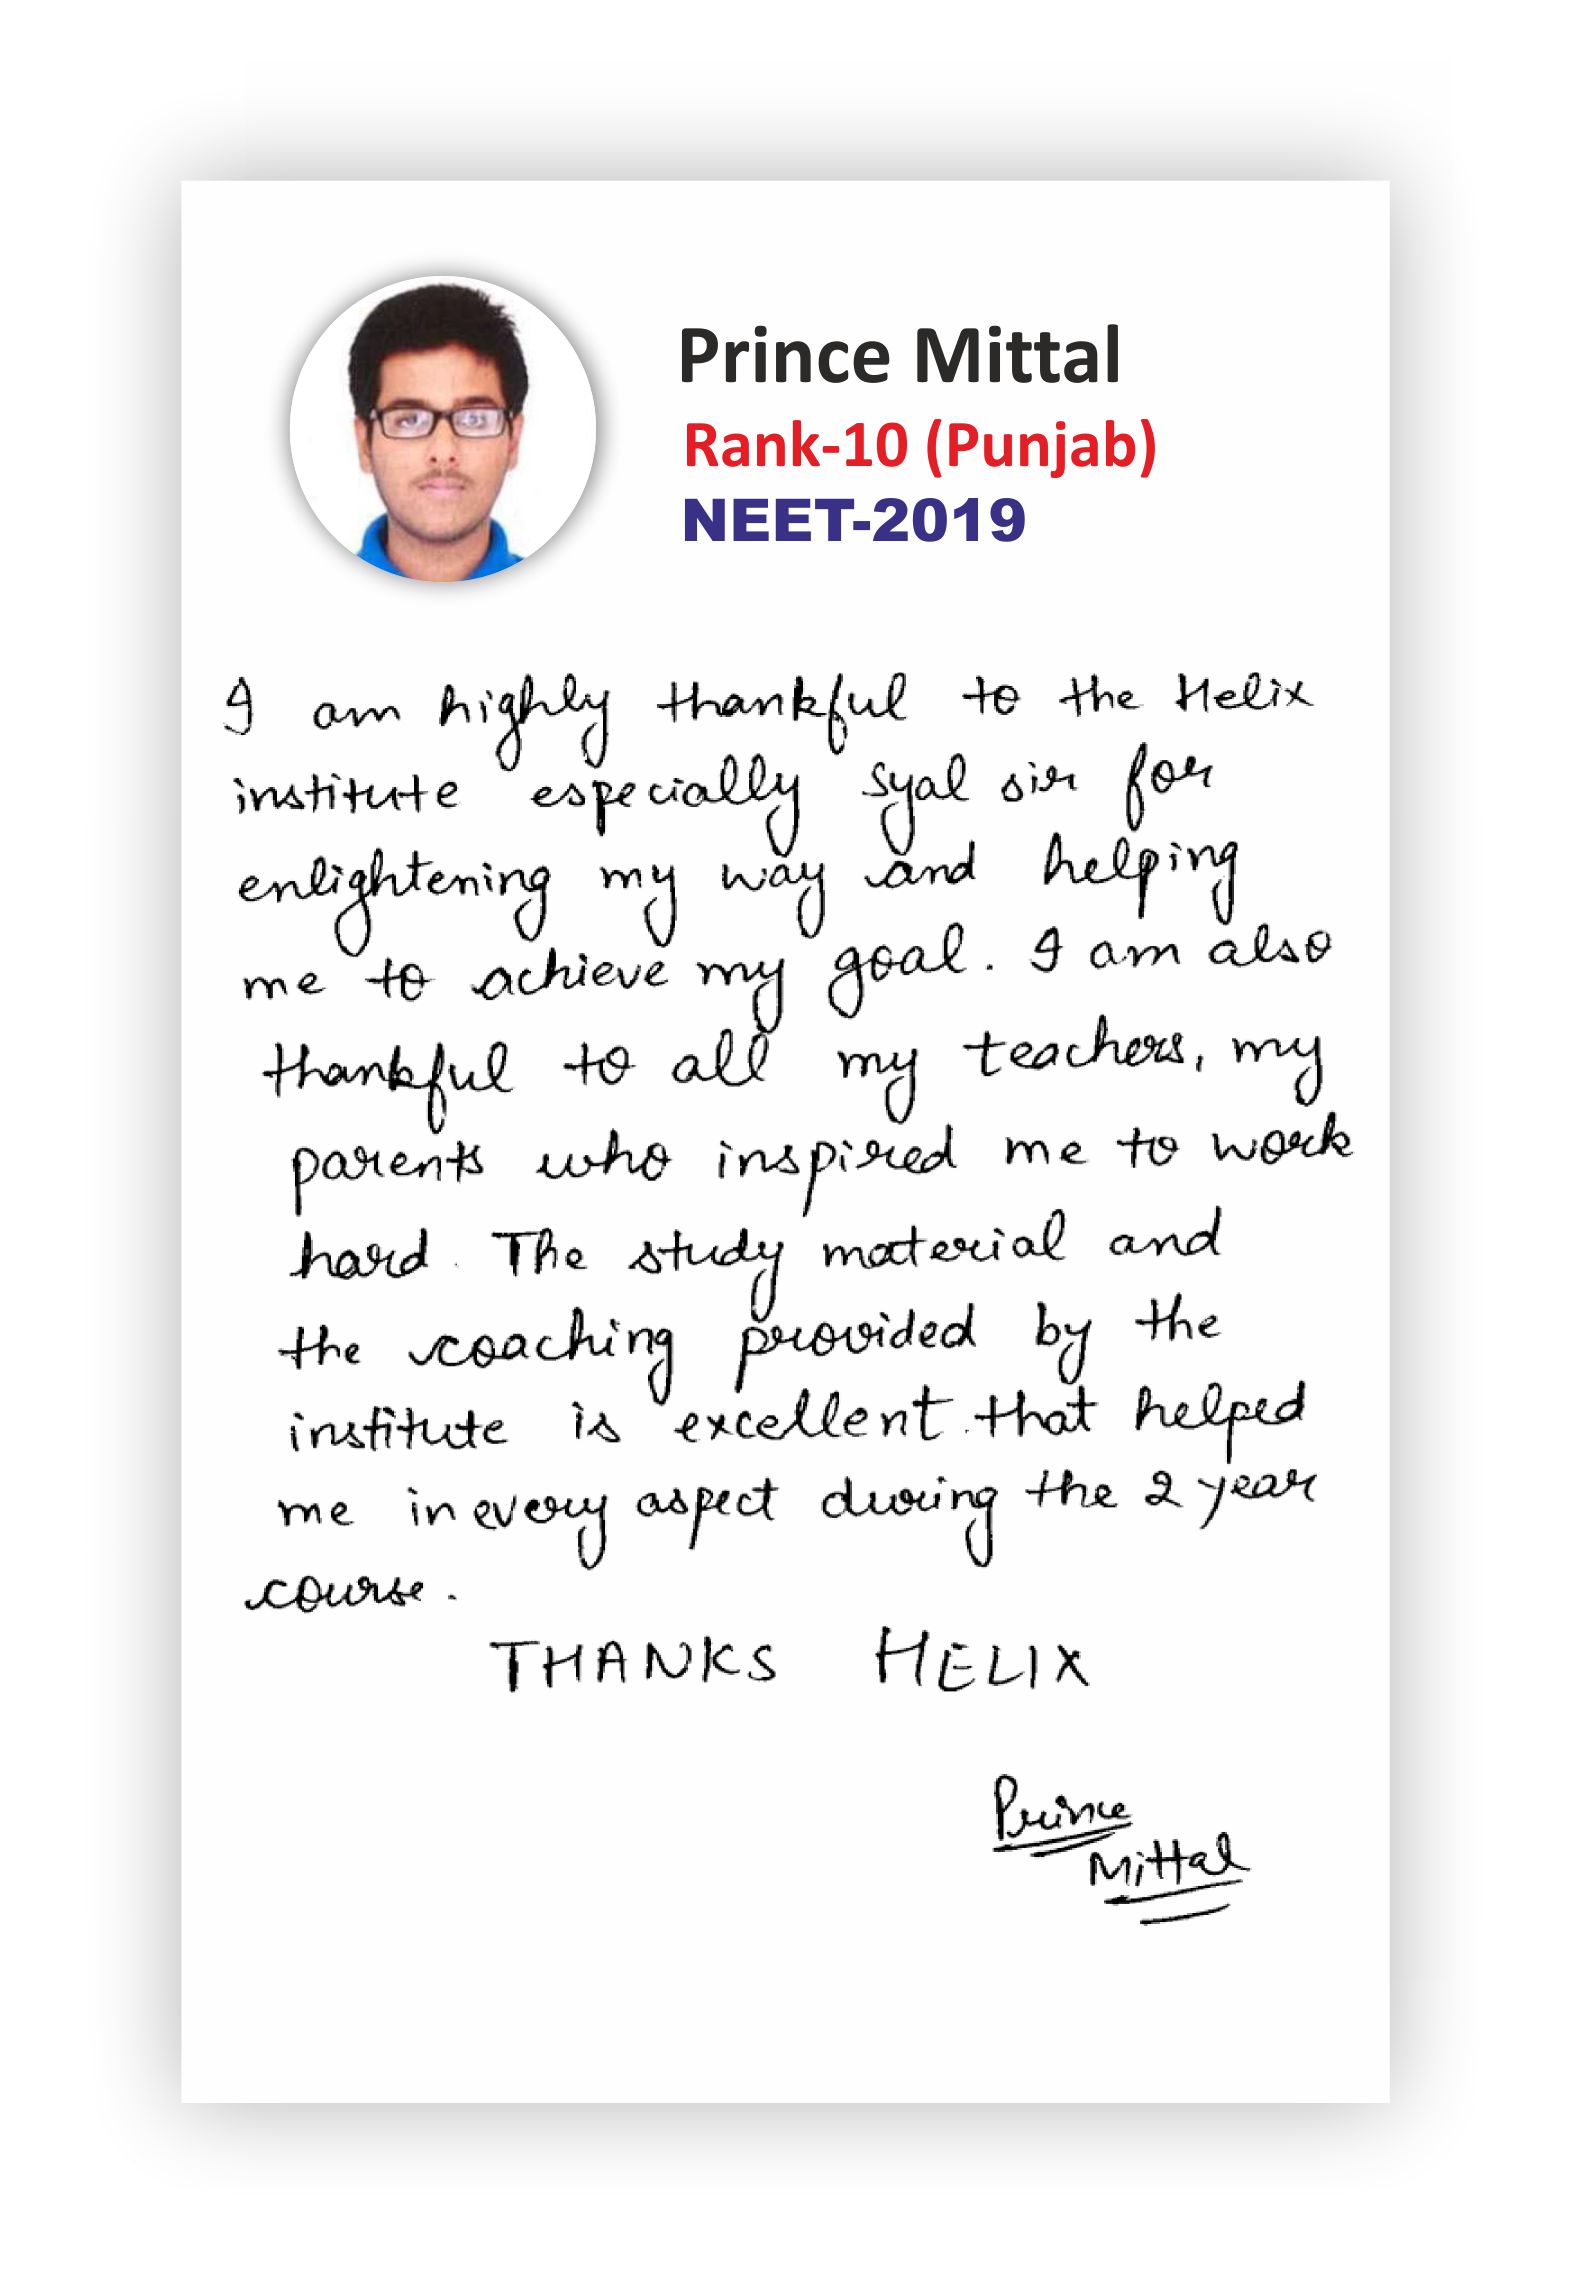 Prince Mittal
Rank-10 (Punjab)
NEET-2019
I am highly thankful to the Helix
institute especially Syal sir for
enlightening my way and helping
me to achieve my goal. I am also
thankful to all my teachers, my
parents who inspired me to work
hard. The study material and
the coaching provided by the
institute is excellent that helped
me in every aspect during the 2 year
course.
THANKS HELIX
Prince
Mittal